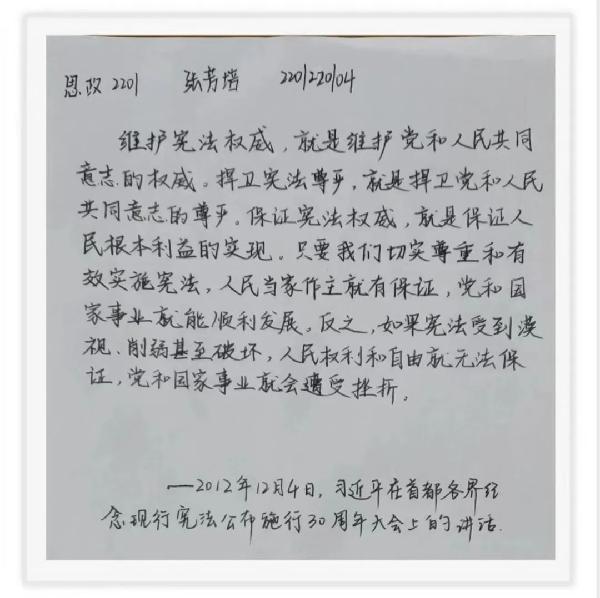 思政2201 张芳培 220122004
维护宪法权威，就是维护党和人民共同
意志的权威。捍卫宪法尊严，就是捍卫党和人民
共同意志的尊严。保证宪法权威，就是保证人
民根本利益的实现。只要我们切实尊重和有
效实施宪法，人民当家作主就有保证，党和国
家事业就能顺利发展。反之，如果宪法受到漠
视、削弱甚至破坏，人民权利和自由就无法保
证，党和国家事业就会遭受挫折。
——2012年12月4日，习近平在首都各界纪
念现行宪法公布施行30周年大会上的讲话.